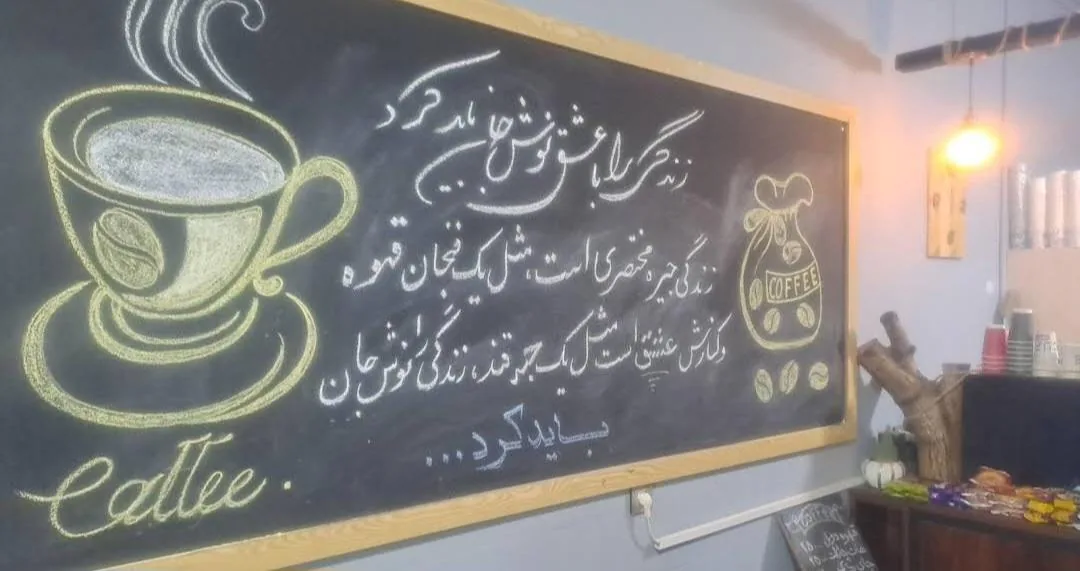 زندگی را با عشق نوش جان باید کرد
زندگی جیره مختصری است، مثل یک فنجان قهوه
و کنارش عشق است مثل یک حبه قند، زندگی را نوش جان
باید کرد...
COFFEE
Caffee.